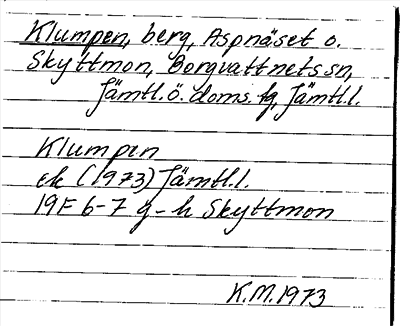 Klumpen, berg, Aspnäset o.
Skyttmon, Borgvattnets sn,
Jämtl.ö. doms. fg, Jämtl.l.
Klumpen
ek (1973) Jämtl.l.
19F 6-7 g-h Skyttmon
K.M. 1973